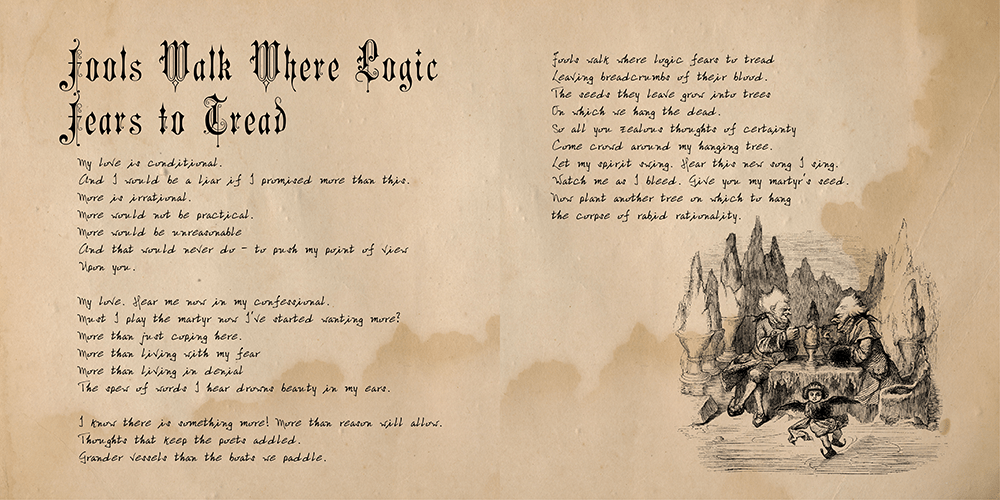 Fools Walk Where Logic
Fears to Tread
My love is conditional.
And I would be a liar if I promised more than this.
More is irrational.
More would not be practical.
More would be unreasonable
And that would never do - to push my point of view
Upon you.
My love. Hear me now in my confessional.
Must I play the martyr now I've started wanting more?
More than just coping here.
More than living with my fear
More than living in denial
The spew of words I hear drowns beauty in my ears.
I know there is something more! More than reason will allow.
Thoughts that keep the poets addled.
Grander vessels than the boats we paddle.
Fools walk where logic fears to tread
Leaving breadcrumbs of their blood.
The seeds they leave grow into trees
On which we hang the dead.
So all you zealous thoughts of certainty
Come crowd around my hanging tree.
Let my spirit swing. Hear this new song I sing.
Watch me as I bleed. Give you my martyr's seed.
Now plant another tree on which to hang
the corpse of rabid rationality.